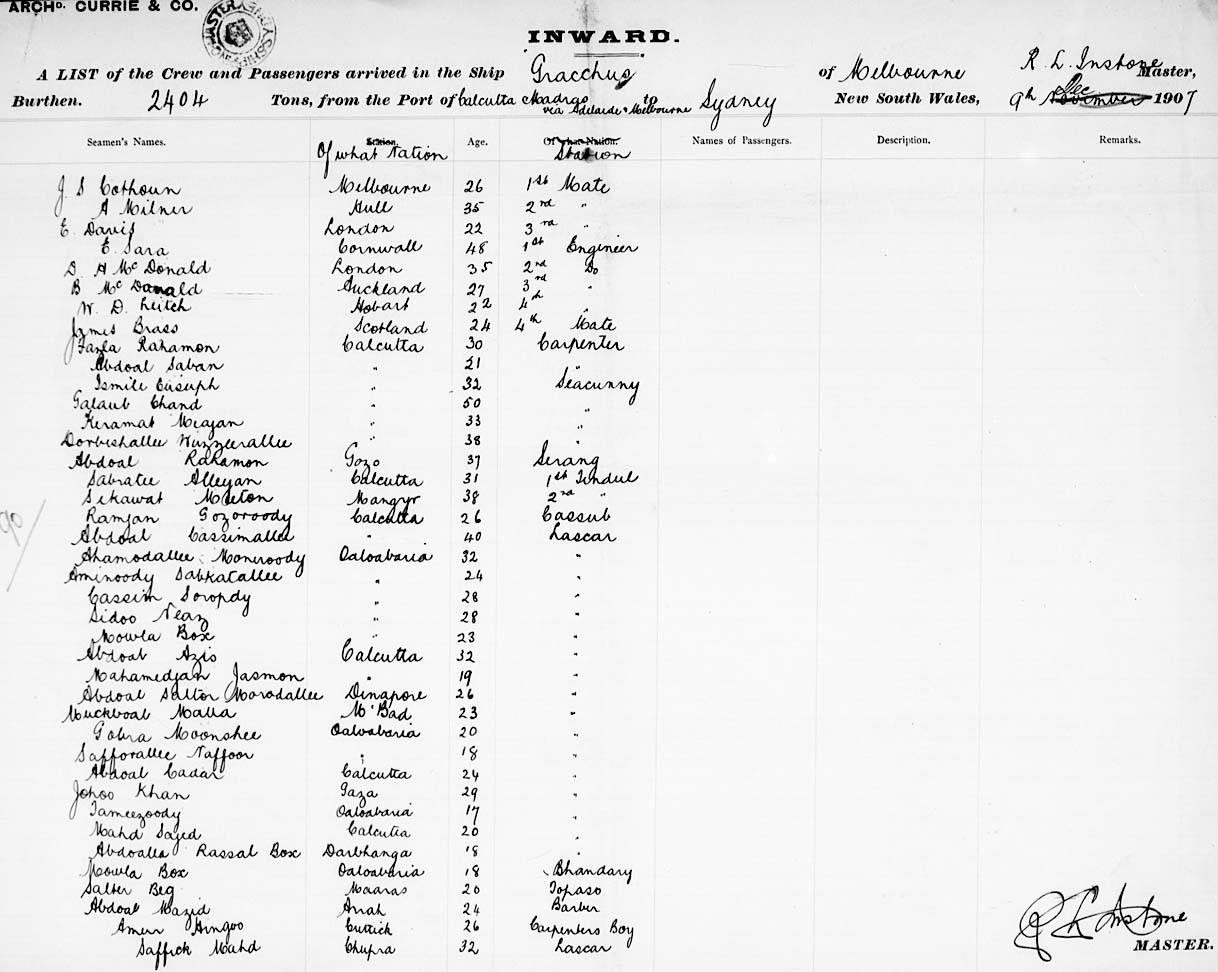 ARCHD. CURRIE & CO.
INWARD.
A LIST of the Crew and Passengers arrived in the Ship Gracchus of Melbourne R. L. Instone Master,
Burthen. 2404 Tons, from the Port of Calcutta Madras via Adelaide & Melbourne to Sydney New South Wales, 9th Dec 1907
Seamen's Names. Station. Age. Of what Nation. Names of Passengers. Description. Remarks.
Of what Nation Station
J. S Colhoun Melbourne 26 1st Mate
A Milner Hull 35 2nd "
E. Davis London 22 3rd "
E. Sara Cornwall 48 1st Engineer
D. A McDonald London 35 2nd Do
B McDonald Auckland 27 3rd "
W. D. Leitch Hobart 22 4th "
James Brass Scotland 24 4th Mate
Fazla Rahamon Calcutta 30 Carpenter
Abdoal Saban " 21 "
Ismile Eusuph " 32 Seacunny
Golaub Chand " 50 "
Keramat Meajan " 33 "
Dorbishallee Wuzzeerallee " 38 "
Abdoal Rahamon Gozo 37 Serang
Sabratee Alleyan Calcutta 31 1st Tindul
Sekawat Mangyr 38 2nd "
Ramjan Gozoroody Calcutta 26 Cassub
Abdoal Cassimallee " 40 Lascar
Ahamodallee Moniroody Oaloabaria 32 "
Aminoody Sabkatallee " 24 "
Cassim Soropdy " 28 "
Sidoo Neaz " 28 "
Mowla Box " 23 "
Abdoal Azis Calcutta 32 "
Mahamedjan Jasmon " 19 "
Abdoal Sattor Morodallee Dinapore 26 "
Muckboal Malla M'Bad 23 "
Gobra Moonshee Oaloabaria 20 "
Safforallee Naffoor " 18 "
Abdoal Cadar Calcutta 24 "
Johoo Khan Gaza 29 "
Tameezoody Oaloabaria 17 "
Mahd Sajed Calcutta 20 "
Abdoalla Rassal Box Darbhanga 18 "
Mowla Box Oaloabaria 18 Bhandary
Salter Beg Maaras 20 Topaso
Abdoal Mazid Arrah 24 Barber
Amer Hingoo Cuttick 26 Carpenters Boy
Saffick Mahd Chupra 32 Lascar
90/
R L Instone
MASTER.